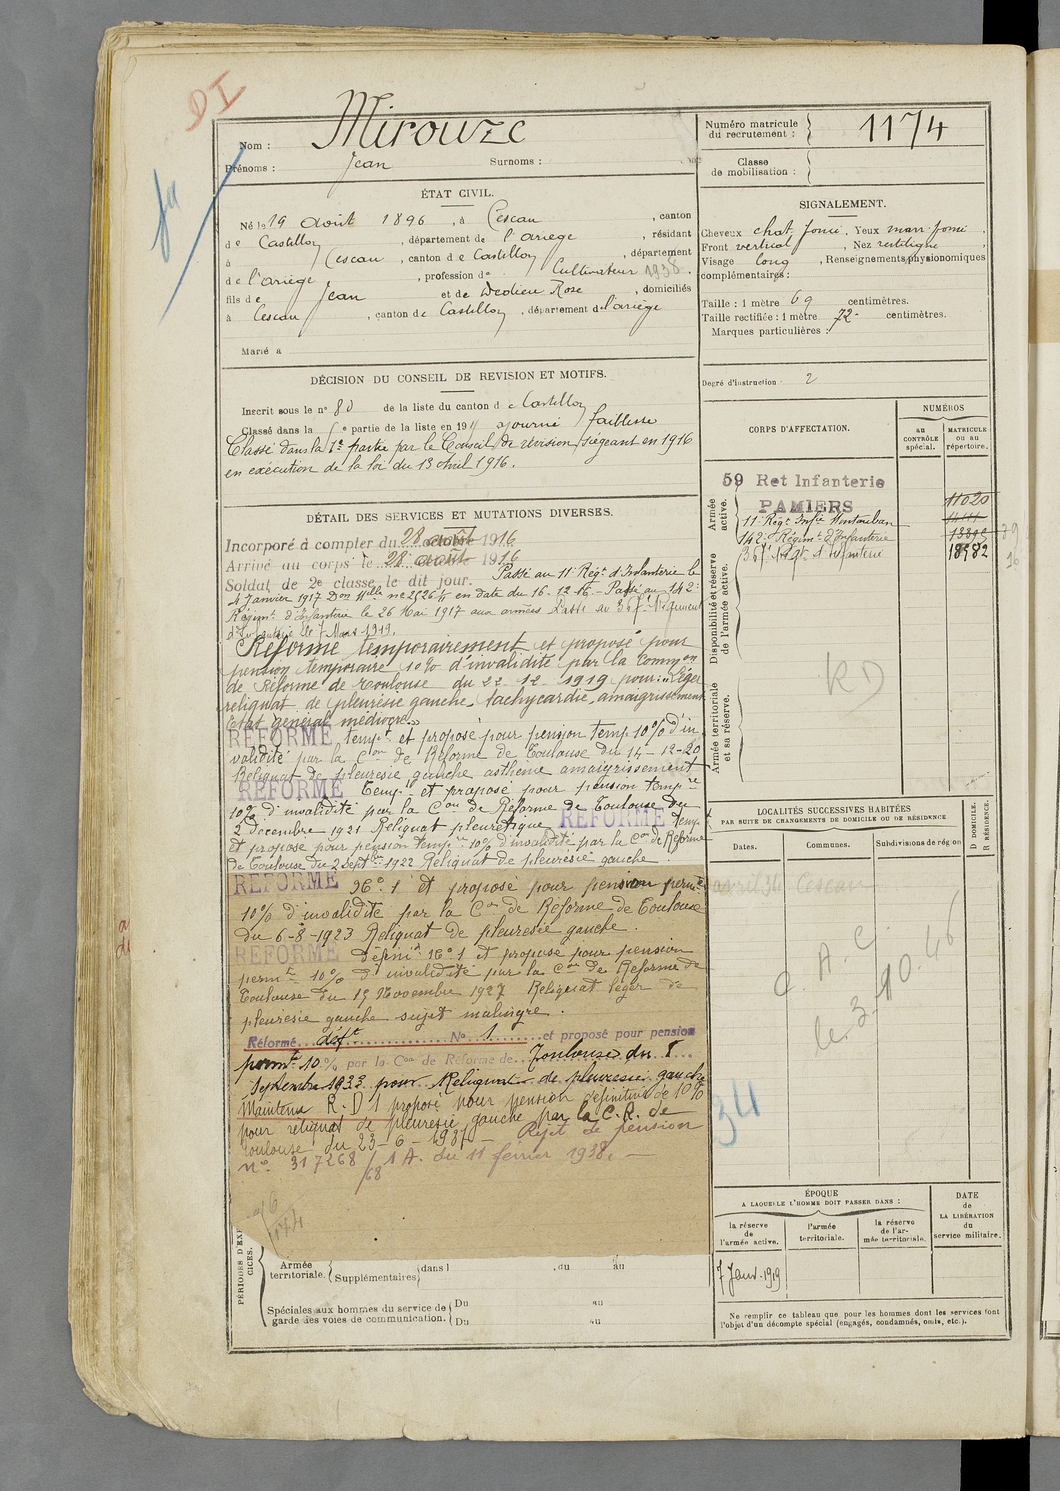 DI
Nom : Mirouze
Prénoms : Jean Surnoms :
Numéro matricule du recrutement : 1174
Classe de mobilisation :
ÉTAT CIVIL.
Né le 19 août 1896, à Cescau, canton
de Castillon, département de l'ariège, résidant
à Cescau, canton de Castillon, département
de l'ariège, profession de Cultivateur 1938.
fils de Jean et de Dedieu Rose, domiciliés
à Cescau, canton de Castillon, département de l'ariège
Marié à
SIGNALEMENT.
Cheveux chat. foncé. Yeux marr. foncé,
Front vertical, Nez rectiligne,
Visage long, Renseignements physionomiques
complémentaires :
Taille : 1 mètre 69 centimètres.
Taille rectifiée : 1 mètre 72 centimètres.
Marques particulières :
Degré d'instruction : 2
DÉCISION DU CONSEIL DE REVISION ET MOTIFS.
Inscrit sous le n° 80 de la liste du canton de Castillon
Classé dans la 5e partie de la liste en 191 ajourné faiblesse
Classé dans la 1re partie par le Conseil de révision siégeant en 1916
en exécution de la loi du 13 avril 1916.
DÉTAIL DES SERVICES ET MUTATIONS DIVERSES.
Incorporé à compter du 28 août 1916
Arrivé au corps le 28 août 1916
Soldat de 2e classe le dit jour. Passé au 11e Régt d'Infanterie le
4 Janvier 1917 Don Mlle en date du 16-12-16 - Passé au 142e
Régimt d'Infanterie le 26 Mai 1917 aux armées Passé au Régiment
d'Infanterie le 7 Mars 1919.
Réformé temporairement et proposé pour
pension temporaire 10% d'invalidité par la Common
de Réforme de Toulouse du 22-12-1919 pour: "Léger
reliquat de pleurésie gauche, tachycardie, amaigrissement
Etat général médiocre."
REFORMÉ tempt et proposé pour pension temp 10% d'in
validité par la Con de Réforme de Toulouse du 14-12-20
Reliquat de pleurésie gauche asthénie amaigrissement
REFORMÉ Temp et proposé pour pension tempre
10% d'invalidité par la Con de Réforme de Toulouse du
2 decembre 1921 Reliquat pleurétique REFORMÉ Temp
et proposé pour pension temp 10% d'invalidité par la Con de Réforme
de Toulouse du 2 Septbre 1922 Reliquat de pleurésie gauche.
REFORMÉ N° 1 et proposé pour pension permte
10% d'invalidité par la Con de Réforme de Toulouse
du 6-8-1923 Reliquat de pleuresie gauche.
REFORMÉ défnit N° 1 et proposé pour pension
permte 10% d'invalidité par la Con de Réforme de
Toulouse du 15 Novembre 1927 Reliquat léger de
pleuresie gauche sujet malingre.
Réformé déft N° 1 et proposé pour pension
permte 10% par la Con de Réforme de Toulouse du 8
Septembre 1933 pour Reliquat de pleuresie gauche
Maintenu R.D 1 proposé pour pension définitive de 10%
pour reliquat de pleuresie gauche par la C.R. de
Toulouse du 23-6-1937 - Rejet de pension
n° 317268/1A. du 11 fevrier 1938. —
68
CORPS D'AFFECTATION.
NUMÉROS
au CONTRÔLE spécial.
MATRICULE ou au répertoire.
Armée active.
Disponibilité et réserve de l'armée active.
Armée territoriale et sa réserve.
59 Ret Infanterie
PAMIERS 11020
11e Régt Infie Montauban
142e Régimt d'Infanterie
Régt d'Infanterie 18982
RD
LOCALITÉS SUCCESSIVES HABITÉES
PAR SUITE DE CHANGEMENTS DE DOMICILE OU DE RÉSIDENCE
D DOMICILE. R RÉSIDENCE.
Dates. Communes. Subdivisions de région
avril 34 Cescau
C. A. C.
34
ÉPOQUE
A LAQUELLE L'HOMME DOIT PASSER DANS :
la réserve de l'armée active.
l'armée territoriale.
la réserve de l'armée territoriale.
DATE de LA LIBÉRATION du service militaire.
7 Janv. 1919
Ne remplir ce tableau que pour les hommes dont les services font
l'objet d'un décompte spécial (engagés, condamnés, omis, etc.).
Armée territoriale. Supplémentaires dans l , du au
Spéciales aux hommes du service de Du au
garde des voies de communication. Du au